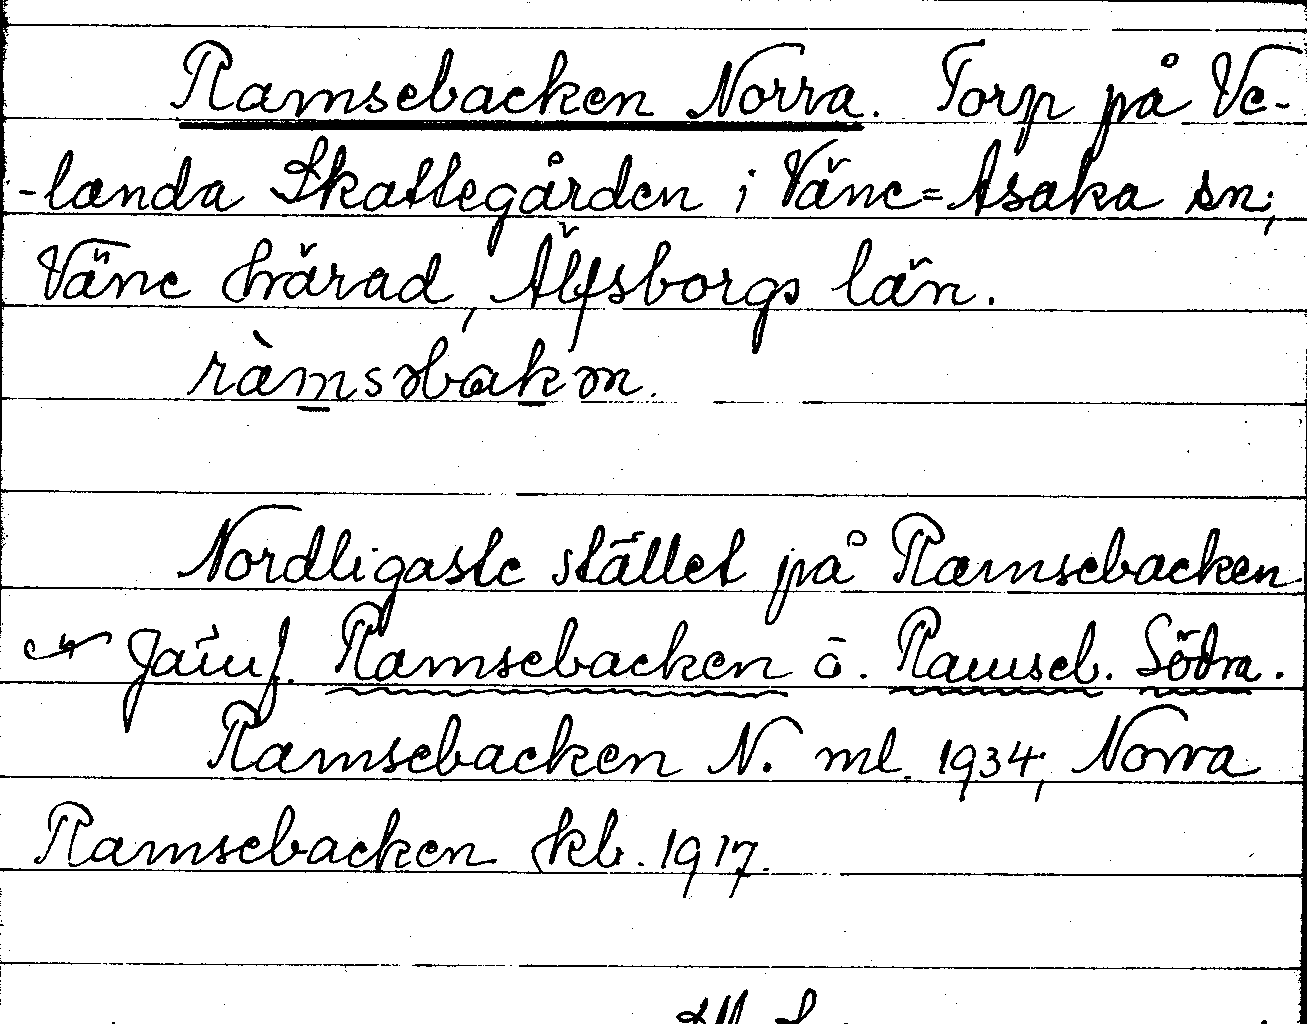 Ramsebacken Norra. Torp på Ve-
-landa Skattegården i Väne=Åsaka sn;
Väne härad, Älfsborgs län.
ràmsəbakən.
Nordligaste stället på Ramsebacken
Jämf. Ramsebacken o. Ramseb. Södra.
Ramsebacken N. ml. 1934; Norra
Ramsebacken kb. 1917.